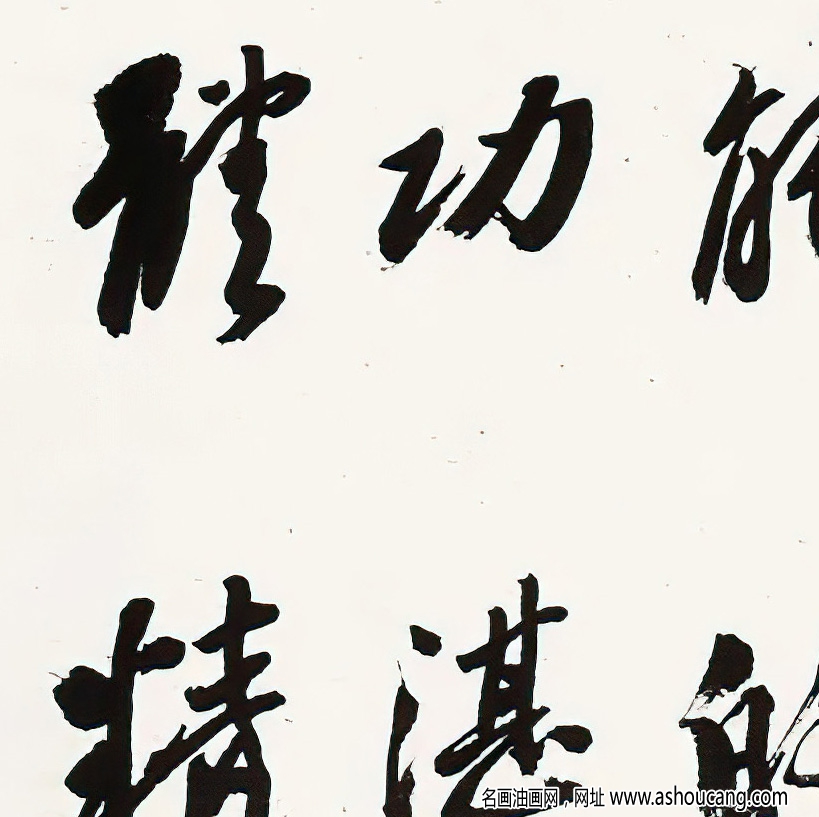 功能
精湛的
名画油画网，网址 www.ashoucang.com